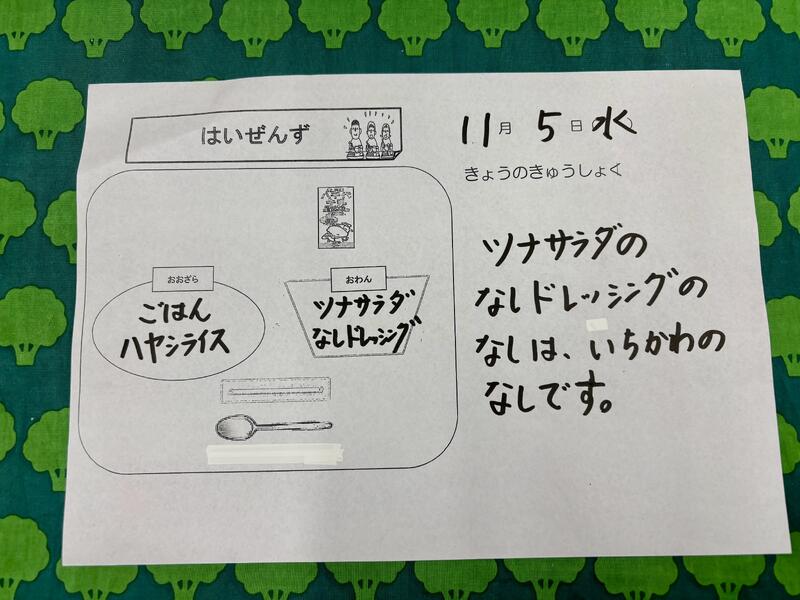 はいぜんず
11月5日水
きょうのきゅうしょく
おおざら
ごはん
ハヤシライス
おわん
ツナサラダ
なしドレッシング
ツナサラダの
なしドレッシングの
なしは、いちかわの
なしです。